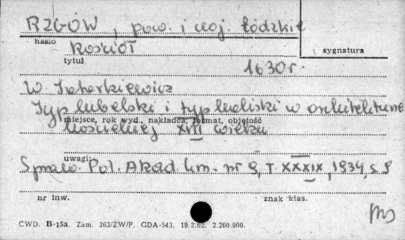 RZGÓW, pow. i woj. łódzkie
hasło
Kościół
sygnatura
tytuł
1630 r.
W. Tatarkiewicz
Typ lubelski i typ kaliski w architekturze
miejsce, rok wyd., nakładca, format, objętość
kościelnej XVII wieku
uwagi
Spraw. Pol. Akad. Um. nr 8, T. XXXIX, 1934, s. 8
nr inw.
znak klas.
CWD. B-15a. Zam. 363/ZW/P. GDA-543. 19.2.62. 2.260.000.